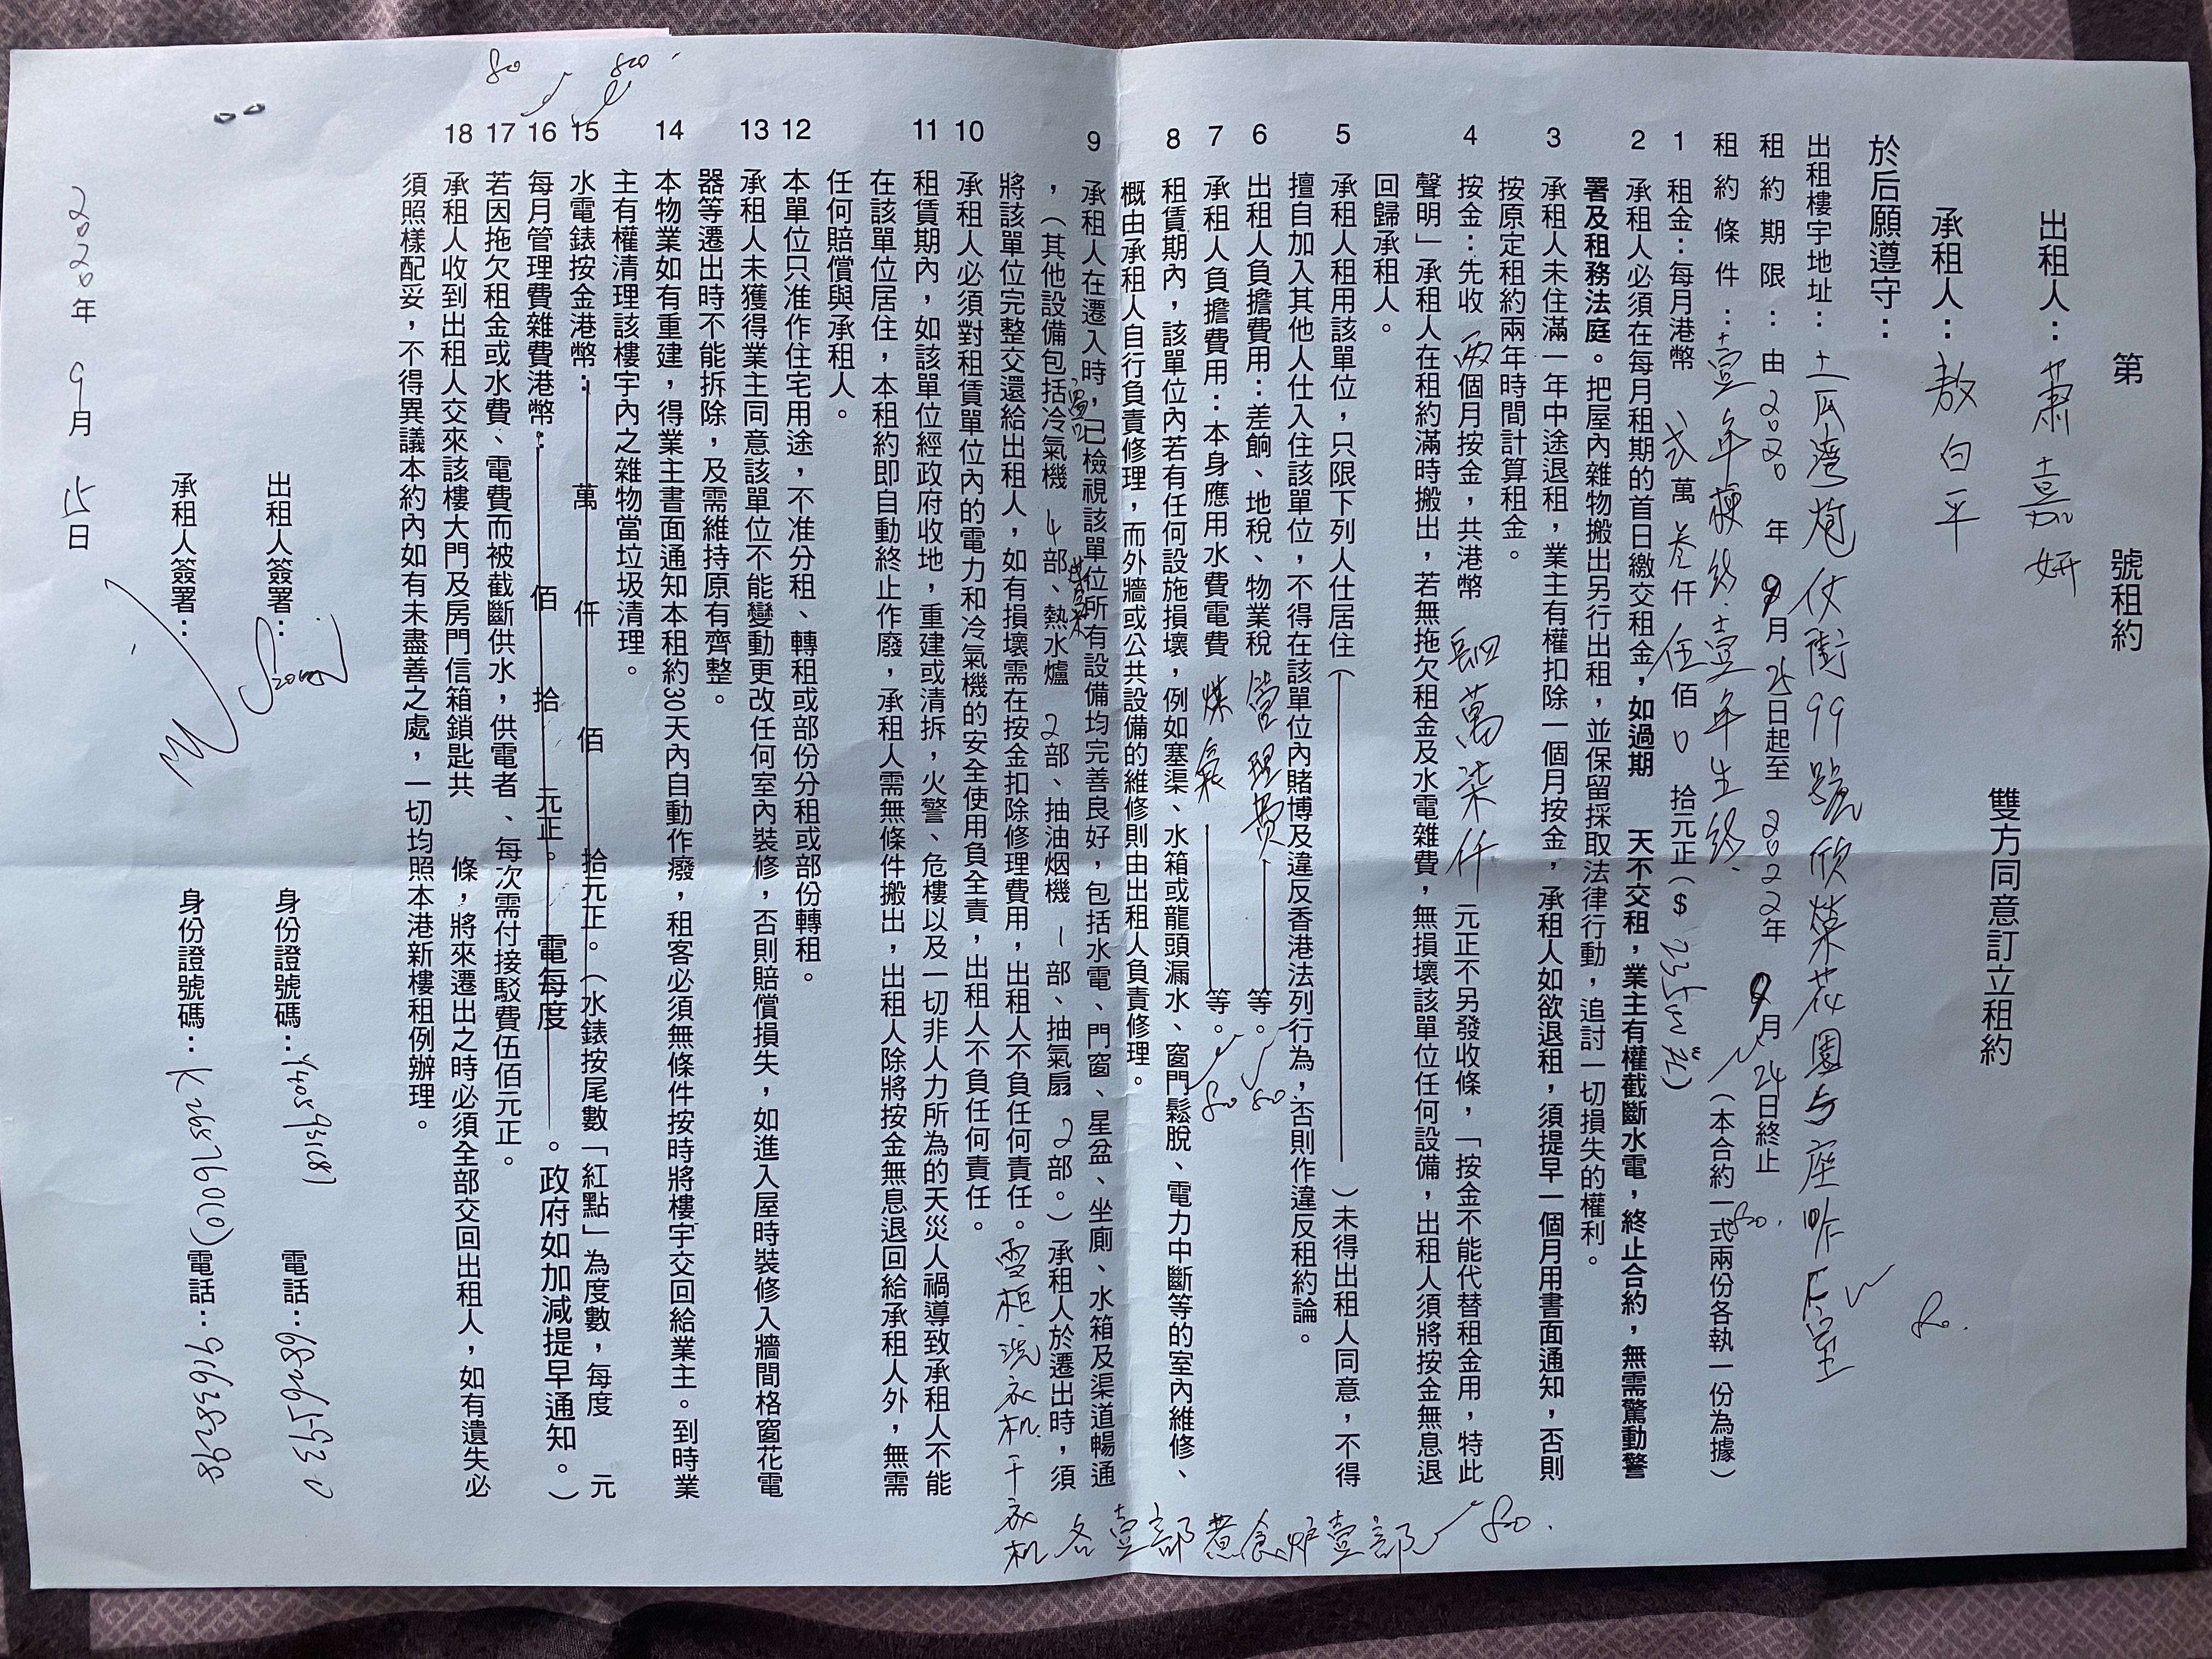 第　　號租約
出租人：蕭嘉妍
承租人：敖白平　　雙方同意訂立租約
於后願遵守：
出租樓宇地址：土瓜灣炮仗街99號欣榮花園5座 室
租約期限：由2020年9月25日起至2022年9月24日終止
租約條件：壹年梗約壹年生約（本合約一式兩份各執一份為據）
1 租金：每月港幣 弍萬叁仟伍佰0拾元正（$ 23500 ）
2 承租人必須在每月租期的首日繳交租金，如過期　天不交租，業主有權截斷水電，終止合約，無需驚動警
署及租務法庭。把屋內雜物搬出另行出租，並保留採取法律行動，追討一切損失的權利。
3 承租人未住滿一年中途退租，業主有權扣除一個月按金，承租人如欲退租，須提早一個月用書面通知，否則
按原定租約兩年時間計算租金。
4 按金：先收兩個月按金，共港幣 萬柒仟 元正不另發收條，「按金不能代替租金用，特此
聲明」承租人在租約滿時搬出，若無拖欠租金及水電雜費，無損壞該單位任何設備，出租人須將按金無息退
回歸承租人。
5 承租人租用該單位，只限下列人仕居住（　　）未得出租人同意，不得
擅自加入其他人仕入住該單位，不得在該單位內賭博及違反香港法列行為，否則作違反租約論。
6 出租人負擔費用：差餉、地稅、物業稅 管理費 等。
7 承租人負擔費用：本身應用水費電費 煤氣 等。
8 租賃期內，該單位內若有任何設施損壞，例如塞渠、水箱或龍頭漏水、窗門鬆脫、電力中斷等的室內維修、
概由承租人自行負責修理，而外牆或公共設備的維修則由出租人負責修理。
9 承租人在遷入時，已檢視該單位所有設備均完善良好，包括水電、門窗、星盆、坐廁、水箱及渠道暢通
，（其他設備包括冷氣機 4部、熱水爐 2部、抽油烟機 1部、抽氣扇 2部。）承租人於遷出時，須
將該單位完整交還給出租人，如有損壞需在按金扣除修理費用，出租人不負任何責任。雪柜、洗衣机、干衣机各壹部煮食炉壹部
10 承租人必須對租賃單位內的電力和冷氣機的安全使用負全責，出租人不負任何責任。
11 租賃期內，如該單位經政府收地，重建或清拆，火警、危樓以及一切非人力所為的天災人禍導致承租人不能
在該單位居住，本租約即自動終止作廢，承租人需無條件搬出，出租人除將按金無息退回給承租人外，無需
任何賠償與承租人。
12 本單位只准作住宅用途，不准分租、轉租或部份分租或部份轉租。
13 承租人未獲得業主同意該單位不能變動更改任何室內裝修，否則賠償損失，如進入屋時裝修入牆間格窗花電
器等遷出時不能拆除，及需維持原有齊整。
14 本物業如有重建，得業主書面通知本租約30天內自動作癈，租客必須無條件按時將樓宇交回給業主。到時業
主有權清理該樓宇內之雜物當垃圾清理。
15 水電錶按金港幣：　萬　仟　佰　拾元正。（水錶按尾數「紅點」為度數，每度　元
16 每月管理費雜費港幣：　佰　拾　元正。　電每度　。政府如加減提早通知。）
17 若因拖欠租金或水費、電費而被截斷供水，供電者、每次需付接駁費伍佰元正。
18 承租人收到出租人交來該樓大門及房門信箱鎖匙共　條，將來遷出之時必須全部交回出租人，如有遺失必
須照樣配妥，不得異議本約內如有未盡善之處，一切均照本港新樓租例辦理。
出租人簽署：　身份證號碼：　電話：
承租人簽署：　身份證號碼：　電話：91638298
2020年9月15日